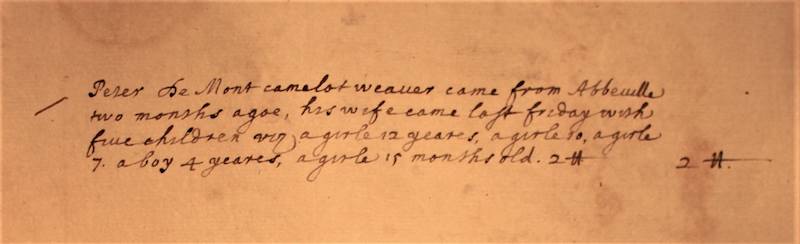 Peter De Mont camelot weauer came from Abbeuille
two months agoe, his wife came last friday with
fiue children viz a girle 12 yeares, a girle 10, a girle
7. a boy 4 yeares, a girle 15 months old. 2 ll 2 ll.